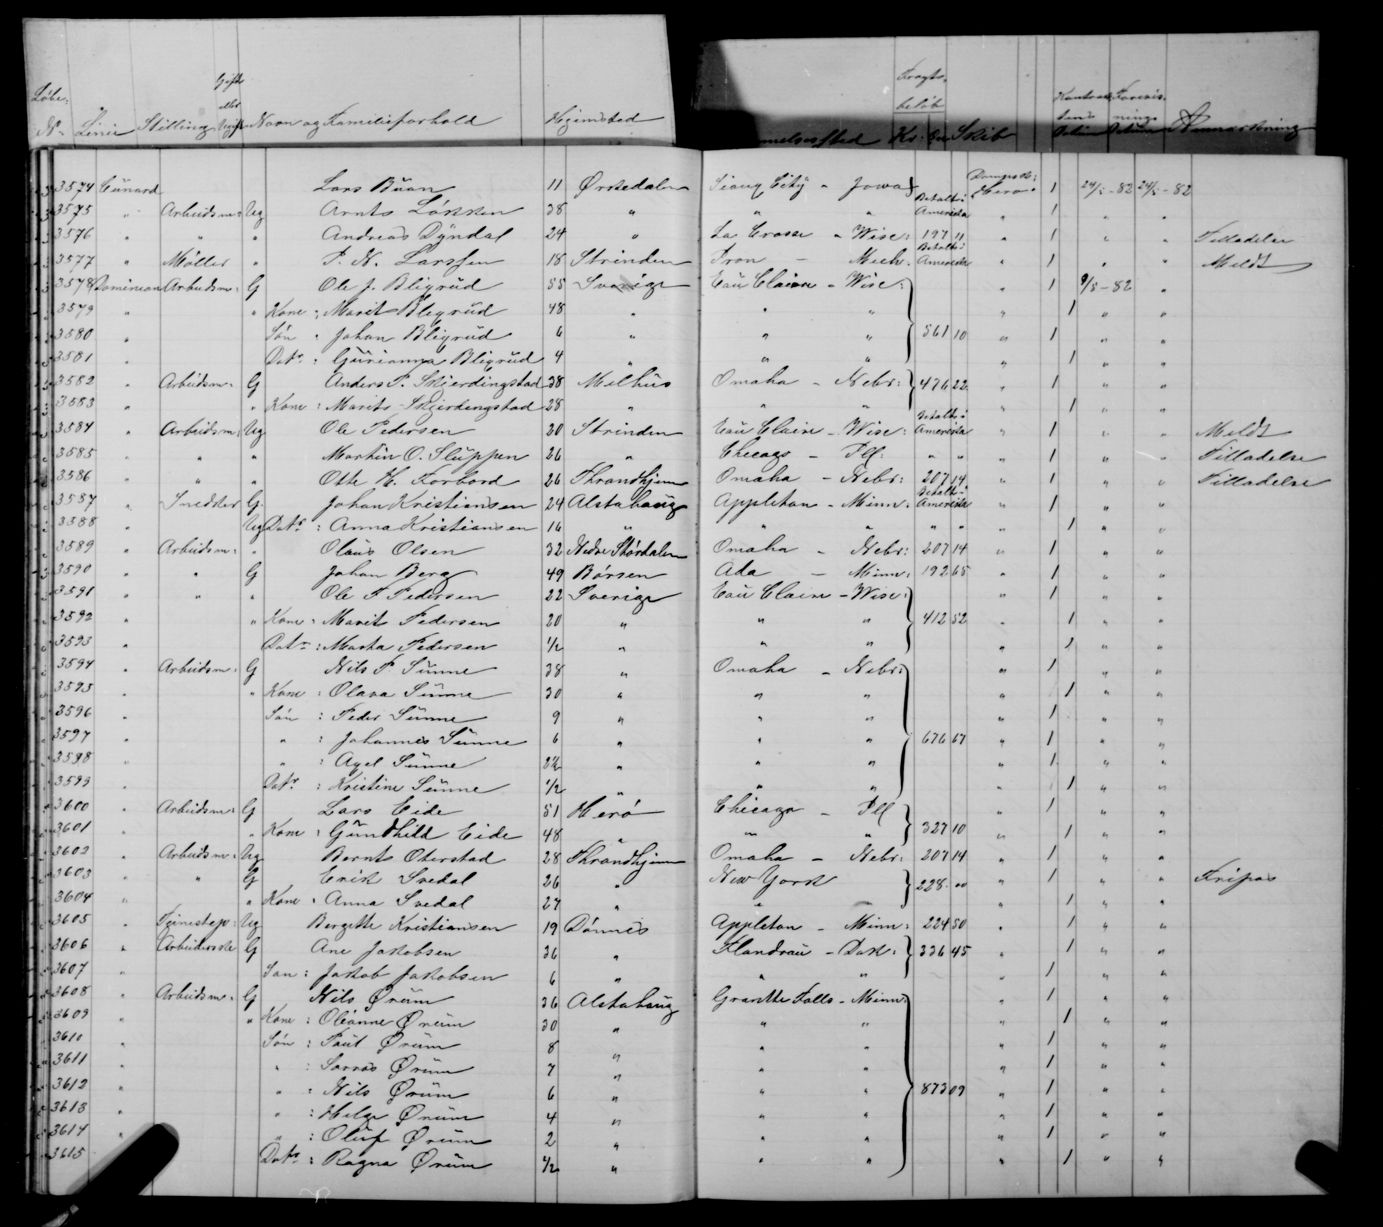 Løbe: Gift Fragt- Kontrakt Forevis-
eller beløb tens nings
No Linie Stilling Ugift Navn og Familieforhold Hjemsted melsessted Kr: Øre Skib Datum Datum Anmærkning
3574 Cunard Lars Buan 11 Ørkedalen Sioux City " Jowa Dampsk: Hero 1 24/2-82 24/2-82
3575 " Arbeidsm: Ug Arnt Løkken 38 " " " Betalt i Amerika " 1 " "
3576 " " " Andreas Dyndal 24 " La Crosse " Wisc: 197 11 " 1 " " Tilladelse
3577 " Møller " P. N. Larssen 18 Strinden Iron - Mich. Betalt i Amerika " 1 " " Meldt
3578 Dominion Arbeidsm: G Ole J. Bligrud 55 Sverige Eau Claire - Wisc: " 1 9/5-82 "
3579 " " Kone : Marit Bligrud 48 " " " 1 " "
3580 " Søn : Johan Bligrud 6 " " " 561 10 " 1 " "
3581 " Datr : Gurianna Bligrud 4 " " " " 1 " "
3582 " Arbeidsm: G Anders P. Skjerdingstad 38 Melhus Omaha - Nebr: 476 22 " 1 " "
3583 " " Kone : Marit Skjerdingstad 28 " " " " 1 " "
3584 " Arbeidsm: Ug Ole Pedersen 20 Strinden Eau Claire - Wisc: Betalt i Amerika " 1 " " Meldt
3585 " " " Martin O. Sluppen 26 " Chicago - Ill: " " " 1 " " Tilladelse
3586 " " " Otto H. Forbord 26 Throndhjem Omaha - Nebr: 207 14 " 1 " " Tilladelse
3587 " Snedker G. Johan Kristiansen 24 Alstahaug Appleton - Minn: Betalt i Amerika " 1 " "
3588 " Ug Datr : Anna Kristiansen 16 " " " " " " 1 " "
3589 " Arbeidsm: " Olaus Olsen 32 Nedre Stördalen Omaha - Nebr: 207 14 " 1 " "
3590 " " G Johan Berg 49 Börsen Ada - Minn: 192 65 " 1 " "
3591 " " " Ole P. Pedersen 22 Sverige Eau Claire - Wisc: " 1 " "
3592 " " Kone : Marit Pedersen 20 " " " 412 52 " 1 " "
3593 " Datr : Martha Pedersen 1/2 " " " " 1 " "
3594 " Arbeidsm: G Nils P. Sunne 38 " Omaha - Nebr: " 1 " "
3595 " " Kone : Olava Sunne 30 " " " " 1 " "
3596 " Søn : Peder Sunne 9 " " " " 1 " "
3597 " " : Johannes Sunne 6 " " " 676 67 " 1 " "
3598 " " : Axel Sunne 2 1/2 " " " " 1 " "
3599 " Datr : Kristine Sunne 1/2 " " " " 1 " "
3600 " Arbeidsm: G Lars Eide 51 Herö Chicago - Ill " 1 " "
3601 " " Kone : Gundhild Eide 48 " " " 327 10 " 1 " "
3602 " Arbeidsm: Ug Bernt Oterstad 28 Throndhjem Omaha - Nebr: 207 14 " 1 " "
3603 " " G Erik Svedal 26 " New York 228 " " 1 " " Fripas
3604 " " Kone : Anna Svedal 27 " " " 1 " "
3605 " Tjenestep: Ug Bergitte Kristiansen 19 Dönnes Appleton - Minn: 224 50 " 1 " "
3606 " G Ane Jakobsen 36 " Flandrau - Dak: 336 45 " 1 " "
3607 " Søn : Jakob Jakobsen 6 " " " " 1 " "
3608 " Arbeidsm: G Nils Ørum 36 Alstahaug Granite Falls - Minn: " 1 " "
3609 " " Kone : Oleanne Ørum 30 " " " " 1 " "
3610 " Søn : Paul Ørum 8 " " " " 1 " "
3611 " " : Ørum 7 " " " " 1 " "
3612 " " : Nils Ørum 6 " " " 873 09 " 1 " "
3613 " " : Helge Ørum 4 " " " " 1 " "
3614 " " : Oluf Ørum 2 " " " " 1 " "
3615 Datr : Ragna Ørum 1/2 " " " " 1 " "